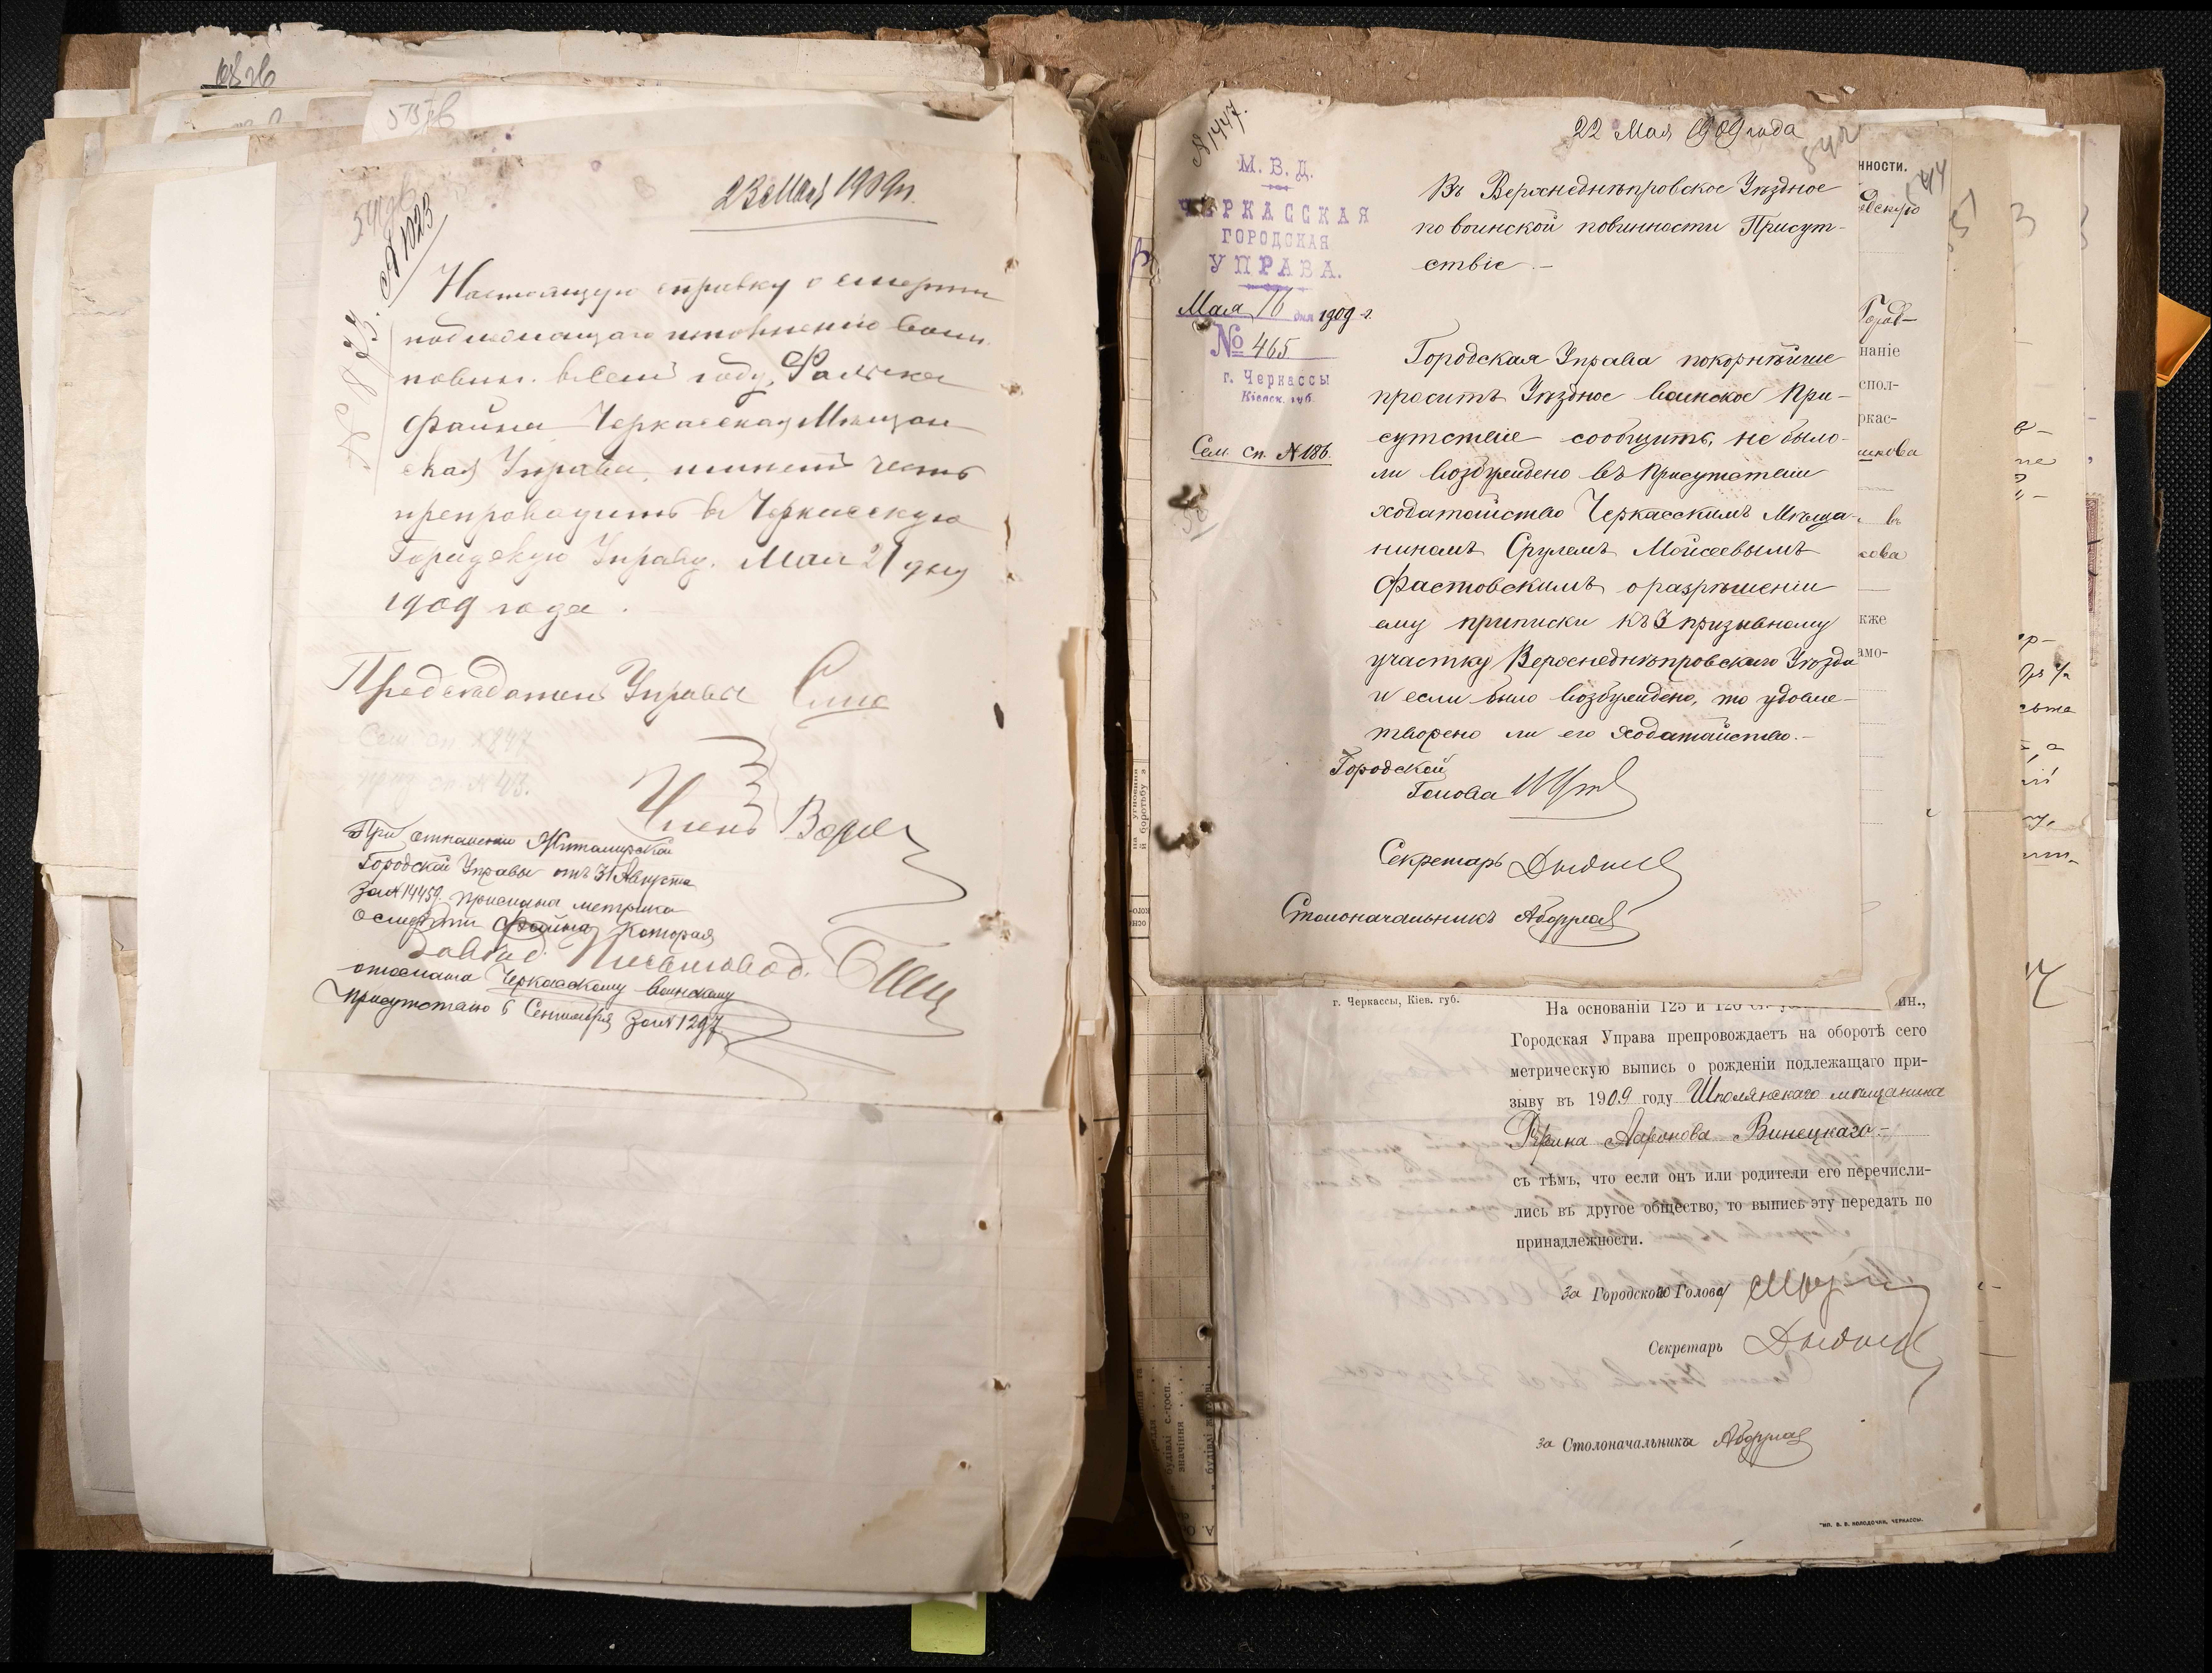 23 Мая 1909 г.
№ 1023
№ 1873.
Настоящую справку о смерти
подлежащаго исполнению воин.
повин. в сем году,
Файна Черкасская Мещан-
ская Управа, имеет честь
препроводить в Черкасскую
Городскую Управу. Мая 21 дня
1909 года.
Председатель Управы
Сем сп №847
приз. сп. №43.
Членъ
При отношении Житомирской
Городской Управы отъ 31 Августа
за №14459 прислана метрика
о смерти Файна, которая
отослана Черкасскому воинскому
присутствию 6 Сентября за №1297
№1447.
22 Мая 1909 года
М. В. Д.
ЧЕРКАССКАЯ
ГОРОДСКАЯ
УПРАВА.
Мая 16 дня 1909 г.
№ 465
г. Черкассы
Кіевск. губ.
Сем. сп. №186.
Въ Верхнеднѣпровское Уѣздное
по воинской повинности Присут-
ствіе.-
Городская Управа покорнѣйше
проситъ Уѣздное воинское При-
сутствіе сообщить, не было-
ли возбуждено въ Присутствіи
ходатайство Черкасскимъ Мѣща-
ниномъ Срулемъ Мойсеевымъ
Фастовскимъ о разрѣшеніи
ему приписки къ 3 призывному
участку Верхнеднѣпровскаго Уѣзда
и если было возбуждено, то удовле-
творено ли его ходатайство.-
Городской
Голова
Секретарь
Столоначальникъ
нности.
Город-
наніе
спол-
ркас-
кже
амо-
г. Черкассы, Кіев. губ.
На основаніи 125 и 126
ин.,
Городская Управа препровождаетъ на оборотѣ сего
метрическую выпись о рожденіи подлежащаго при-
зыву въ 1909 году Шполянскаго мѣщанина
Ааронова Винецкаго.-
съ тѣмъ, что если онъ или родители его перечисли-
лись въ другое общество, то выпись эту передать по
принадлежности.
За Городского Голову
Секретарь
За Столоначальника
ТИП. В. В. КОЛОДОЧКИ, ЧЕРКАССЫ.